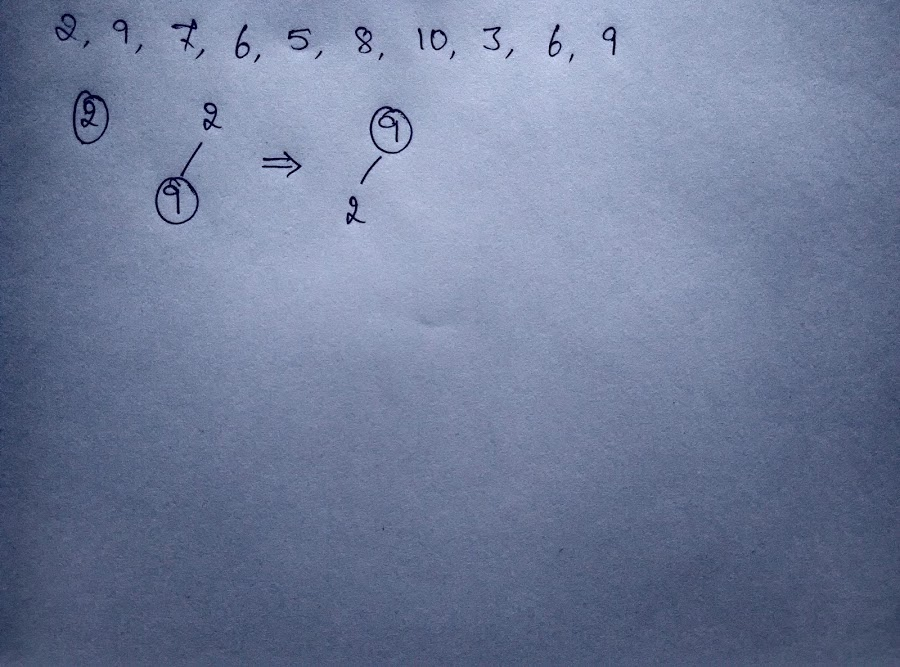 2, 9, 7, 6, 5, 8, 10, 3, 6, 9
2 2 ⇒ 9
9 2